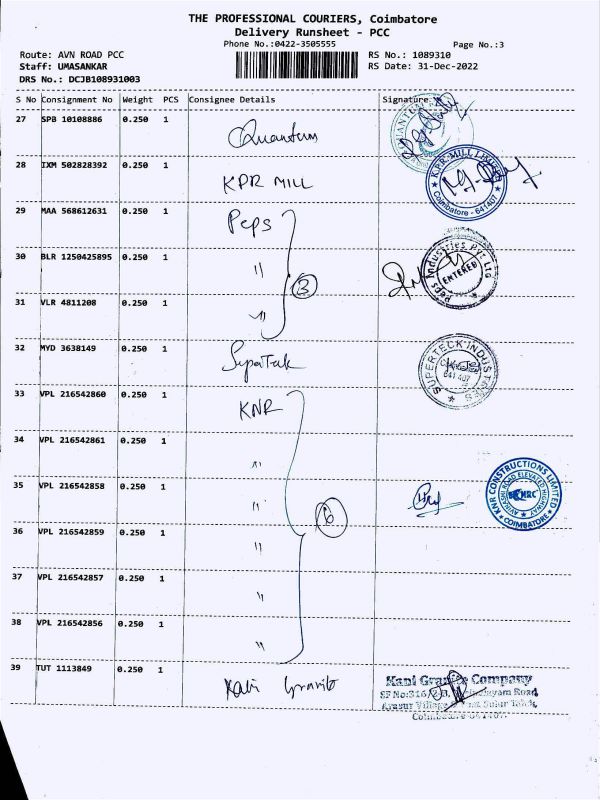 THE PROFESSIONAL COURIERS, Coimbatore
Delivery Runsheet - PCC
Phone No.:0422-3505555
Page No.:3
Route: AVN ROAD PCC
RS No.: 1089310
Staff: UMASANKAR
RS Date: 31-Dec-2022
DRS No.: DCJB108931003
S No Consignment No Weight PCS Consignee Details Signature
27 SPB 10108886 0.250 1 Quantum
28 IXM 502828392 0.250 1 KPR MILL
K.P.R. MILL LIMITED
Coimbatore - 641407
29 MAA 568612631 0.250 1 Peps
30 BLR 1250425895 0.250 1 " 3
Peps Industries Pvt Ltd
ENTERED
31 VLR 4811208 0.250 1 "
32 MYD 3638149 0.250 1
SUPERTECK INDUSTRIES
641 407
33 VPL 216542860 0.250 1 KNR
34 VPL 216542861 0.250 1 "
35 VPL 216542858 0.250 1 "
KNR CONSTRUCTIONS LIMITED
AVINASHI ROAD ELEVATED HIGHWAY
COIMBATORE
6
36 VPL 216542859 0.250 1 "
37 VPL 216542857 0.250 1 "
38 VPL 216542856 0.250 1 "
39 TUT 1113849 0.250 1 Kani Granite
Kani Granite Company
SF No:316/2B,
Road
Arasur Village
Sulur Taluk,
Coimbatore-641407.